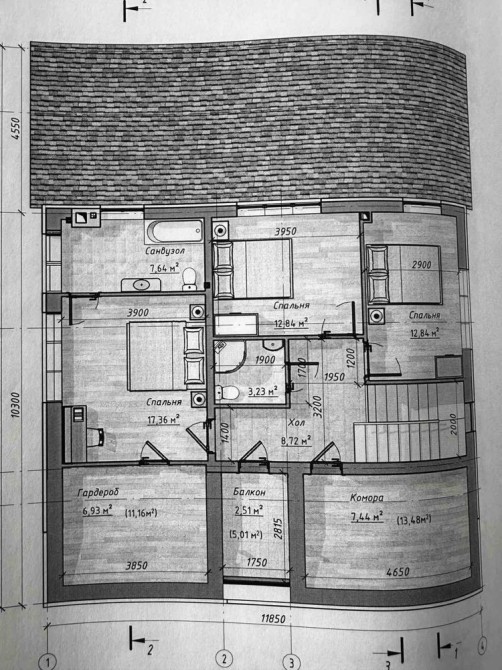 2
4550
3950
Санвузол
7,64 м²
2900
Спальня
12,84 м²
Спальня
12,84 м²
3900
1900
1700
1200
1950
3,23 м²
3200
Спальня
17,36 м²
10300
Хол
8,72 м²
1400
2000
Гардероб
6,93 м² (11,16м²)
Балкон
2,51 м²
(5,01 м²)
2815
Комора
7,44 м² (13,48м²)
3850
1750
4650
11850
1
2
2
3
3
1
4